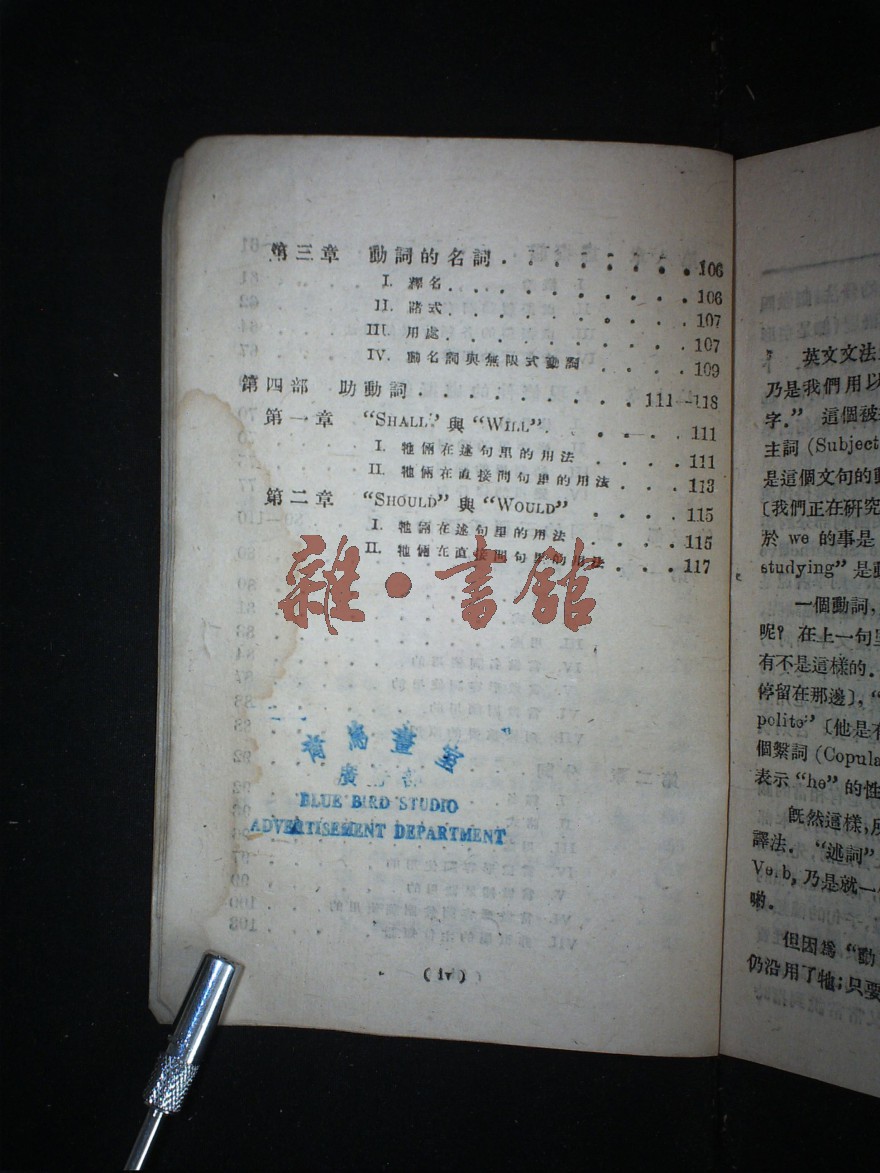 第三章 動詞的名詞 . . . . . . . . . 106
I. 釋名 . . . . . . . . . 106
II. 諸式 . . . . . . . . . 107
III. 用處 . . . . . . . . . 107
IV. 動名詞與無限式動詞 . . . . . 109
第四部 助動詞 . . . . . . . . . 111—118
第一章 “SHALL” 與 “WILL” . . . . . 111
I. 牠倆在述句里的用法 . . . . . 111
II. 牠倆在直接問句里的用法 . . . . 113
第二章 “SHOULD” 與 “WOULD” . . . . 115
I. 牠倆在述句里的用法 . . . . . 115
II. 牠倆在直接問句里的用法 . . . . 117
雜·書館
畫室
廣
BLUE BIRD STUDIO
ADVERTISEMENT DEPARTMENT
(iv)
英文文法
乃是我們用以
字.” 這個被
主詞 (Subject
是這個文句的
〔我們正在研究
於 we 的事是
studying” 是
一個動詞,
呢? 在上一句
有不是這樣的.
停留在那邊〕, “
polite” 〔他是有
個繫詞 (Copula
表示 “he” 的性
既然這樣,
譯法. “述詞”
Verb, 乃是就一
喲.
但因爲 “動
仍沿用了牠; 只要